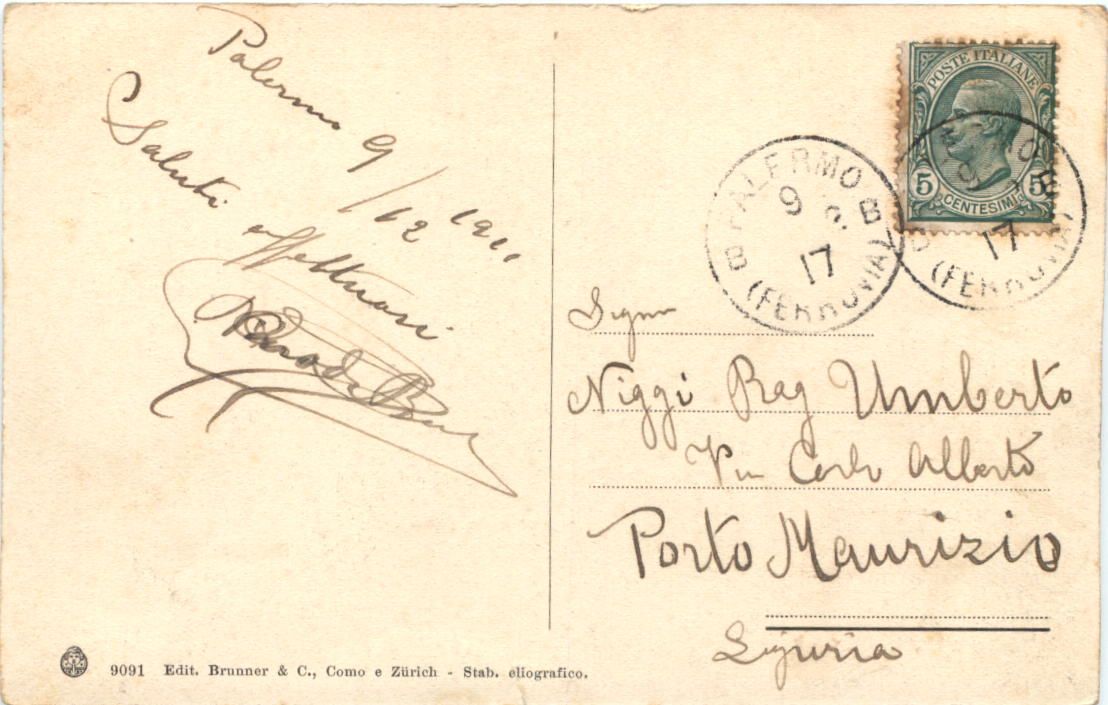 Palermo 9/12 1911
Saluti
affettuosi
POSTE ITALIANE
5 5
CENTESIMI
PALERMO
9
B B
17
(FERROVIA)
B
9
B B
17
(FERROVIA)
Signor
Niggi Rag Umberto
Via Carlo Alberto
Porto Maurizio
Liguria
9091 Edit. Brunner & C., Como e Zürich - Stab. eliografico.